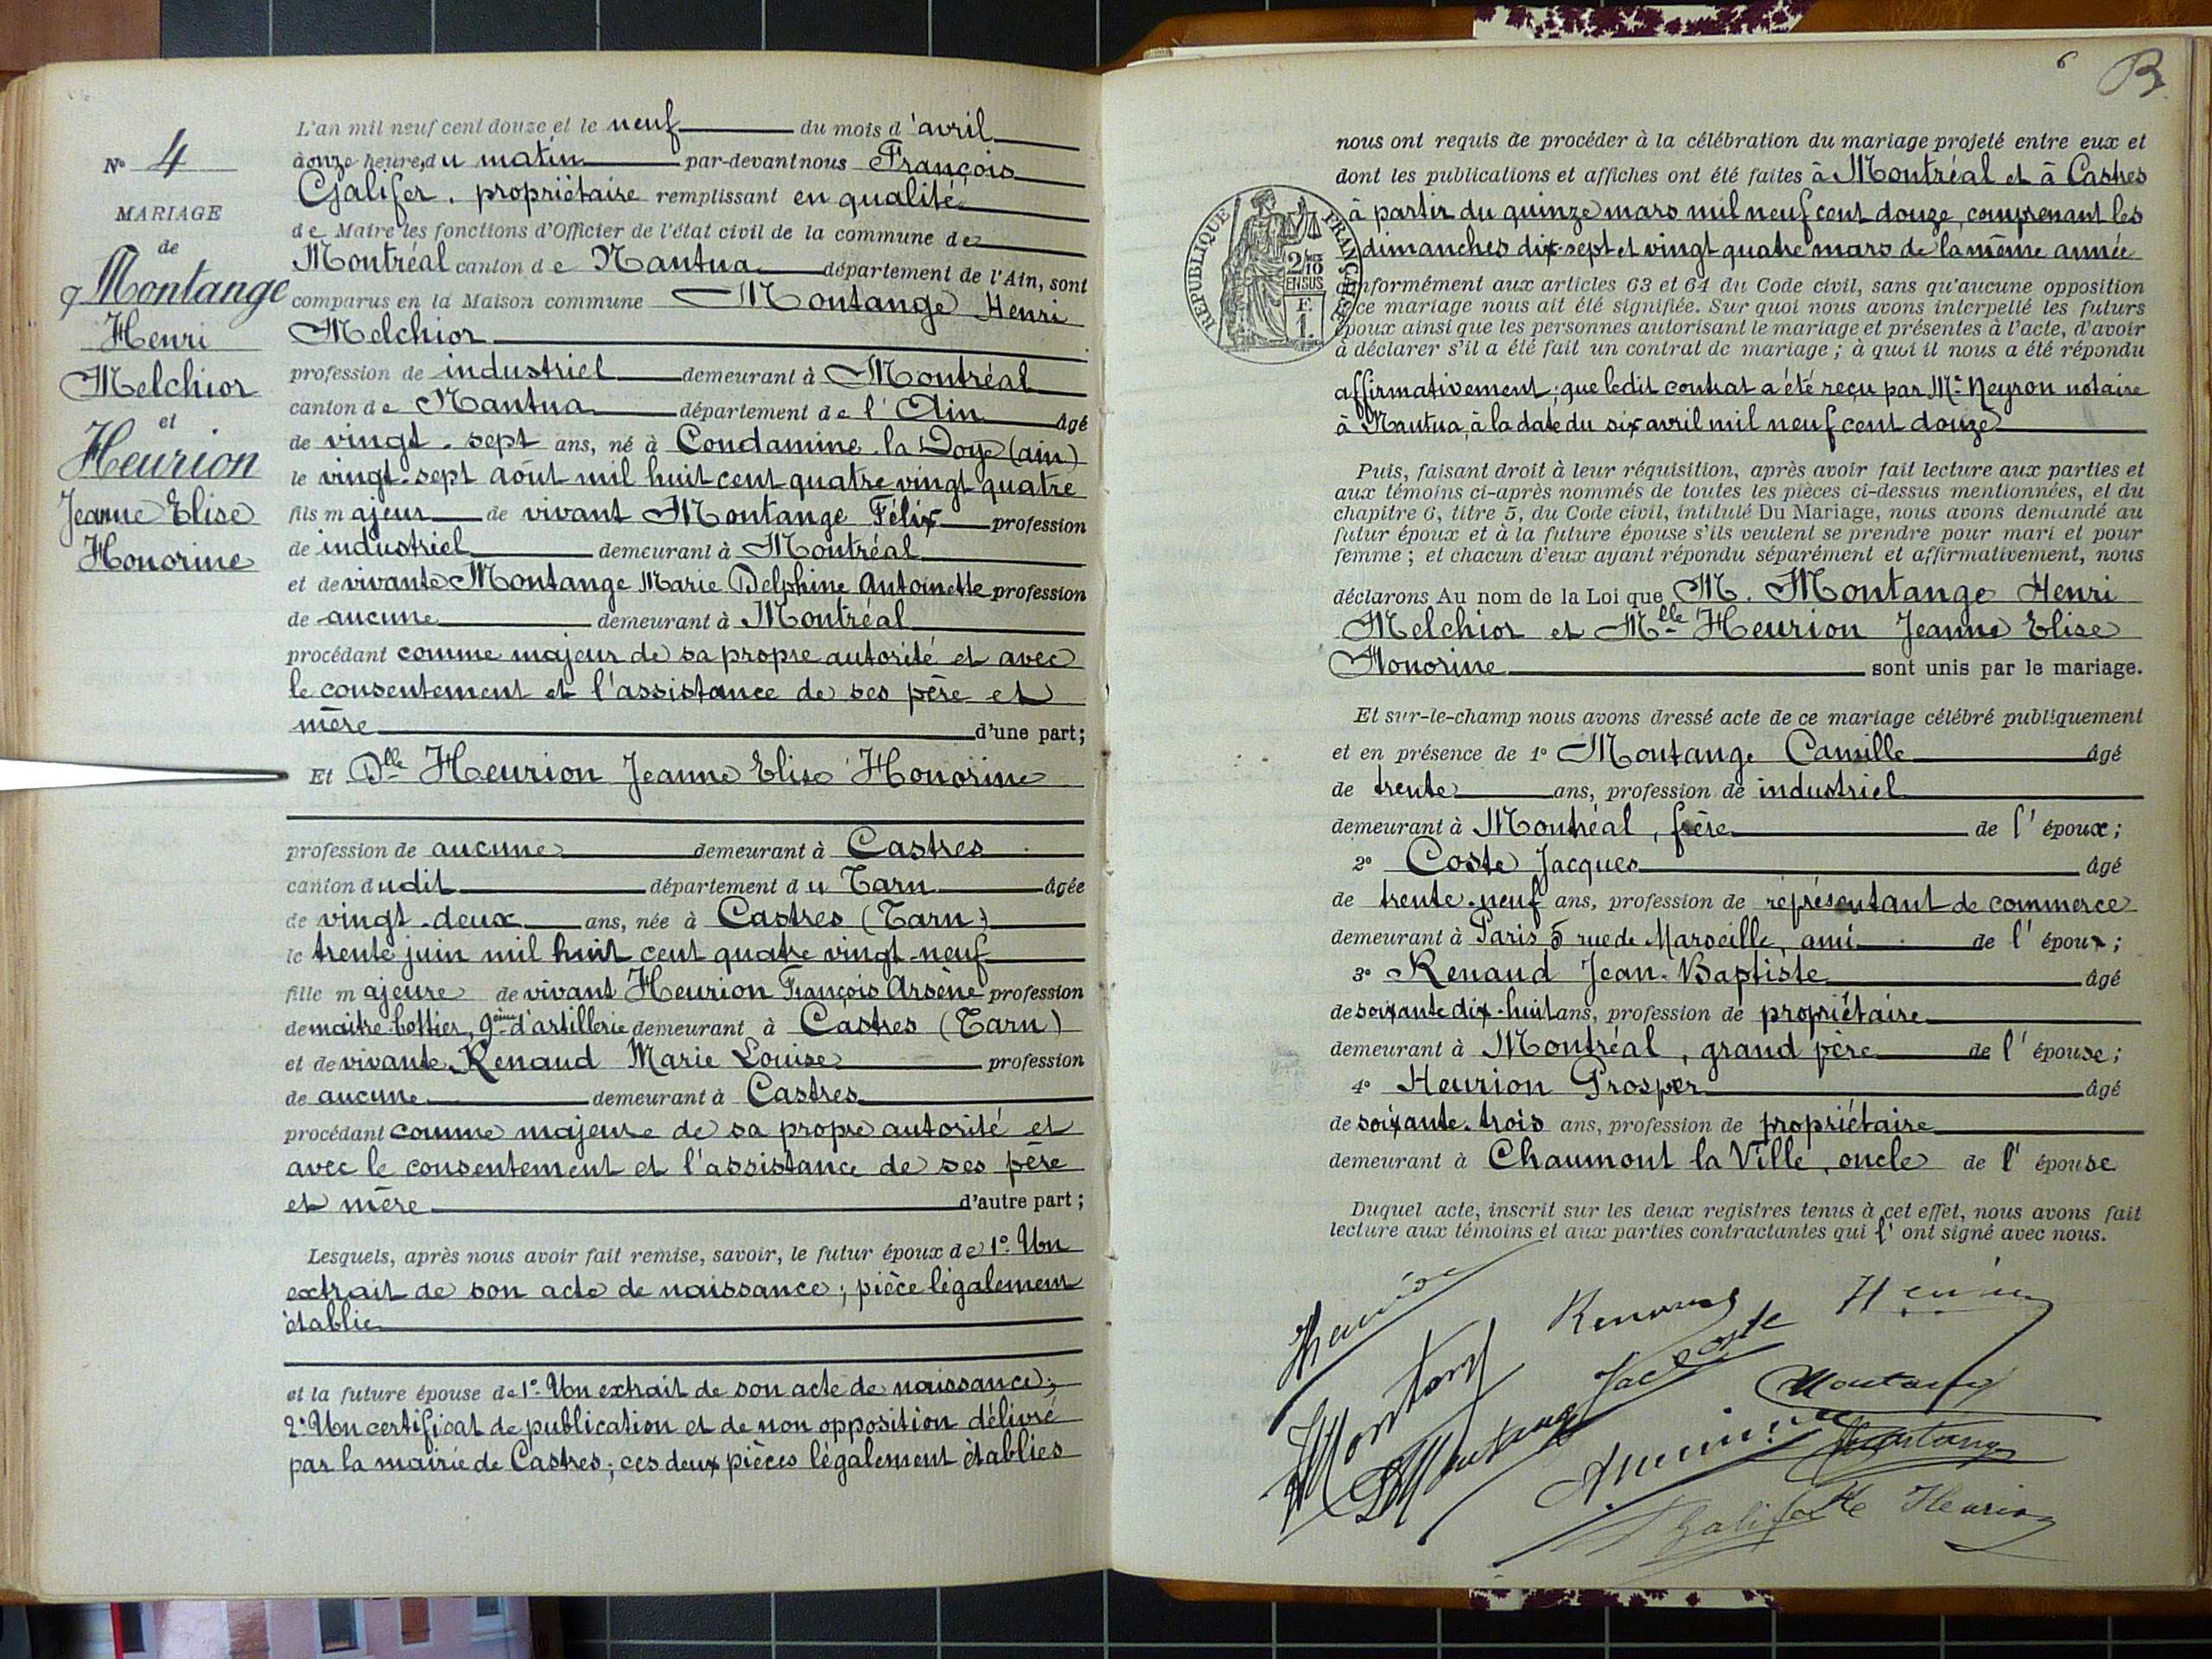 N° 4
MARIAGE
de
Montange
Henri
Melchior
et
Heurion
Jeanne Elise
Honorine
L'an mil neuf cent douze et le neuf du mois d'avril
à onze heures du matin par-devant nous François
Galifer, propriétaire remplissant en qualité
de Maire les fonctions d'Officier de l'état civil de la commune de
Montréal canton de Nantua département de l'Ain, sont
comparus en la Maison commune Montange Henri
Melchior
profession de industriel demeurant à Montréal
canton de Nantua département de l'Ain âgé
de vingt-sept ans, né à Condamine la Doye (ain)
le vingt-sept août mil huit cent quatre vingt quatre
fils majeur de vivant Montange Félix profession
de industriel demeurant à Montréal
et de vivante Montange Marie Delphine Antoinette profession
de aucune demeurant à Montréal
procédant comme majeur de sa propre autorité et avec
le consentement et l'assistance de ses père et
mère d'une part;
Et Dlle Heurion Jeanne Elise Honorine
profession de aucune demeurant à Castres
canton dudit département du Tarn âgée
de vingt-deux ans, née à Castres (Tarn)
le trente juin mil huit cent quatre vingt-neuf
fille majeure de vivant Heurion François Arsène profession
de maitre-bottier, 9ème d'artillerie demeurant à Castres (Tarn)
et de vivante Renaud Marie Louise profession
de aucune demeurant à Castres
procédant comme majeure de sa propre autorité et
avec le consentement et l'assistance de ses père
et mère d'autre part;
Lesquels, après nous avoir fait remise, savoir, le futur époux de 1° Un
extrait de son acte de naissance; pièce légalement
établie
et la future épouse de 1° Un extrait de son acte de naissance;
2° Un certificat de publication et de non opposition délivré
par la mairie de Castres; ces deux pièces légalement établies
6 B
RÉPUBLIQUE FRANÇAISE
2/10 EN SUS
F.
1.
nous ont requis de procéder à la célébration du mariage projeté entre eux et
dont les publications et affiches ont été faites à Montréal et à Castres
à partir du quinze mars mil neuf cent douze, comprenant les
dimanches dix-sept et vingt quatre mars de la même année
conformément aux articles 63 et 64 du Code civil, sans qu'aucune opposition
à ce mariage nous ait été signifiée. Sur quoi nous avons interpellé les futurs
époux ainsi que les personnes autorisant le mariage et présentes à l'acte, d'avoir
à déclarer s'il a été fait un contrat de mariage; à quoi il nous a été répondu
affirmativement; que ledit contrat a été reçu par Me Neyron notaire
à Nantua, à la date du six avril mil neuf cent douze
Puis, faisant droit à leur réquisition, après avoir fait lecture aux parties et
aux témoins ci-après nommés de toutes les pièces ci-dessus mentionnées, et du
chapitre 6, titre 5, du Code civil, intitulé Du Mariage, nous avons demandé au
futur époux et à la future épouse s'ils veulent se prendre pour mari et pour
femme; et chacun d'eux ayant répondu séparément et affirmativement, nous
déclarons Au nom de la Loi que M. Montange Henri
Melchior et Mlle Heurion Jeanne Elise
Honorine sont unis par le mariage.
Et sur-le-champ nous avons dressé acte de ce mariage célébré publiquement
et en présence de 1° Montange Camille âgé
de trente ans, profession de industriel
demeurant à Montréal, frère de l'époux;
2° Coste Jacques âgé
de trente-neuf ans, profession de représentant de commerce
demeurant à Paris 5 rue de Marseille, ami de l'époux;
3° Renaud Jean-Baptiste âgé
de soixante dix-huit ans, profession de propriétaire
demeurant à Montréal, grand père de l'épouse;
4° Heurion Prosper âgé
de soixante-trois ans, profession de propriétaire
demeurant à Chaumont la Ville, oncle de l'épouse
Duquel acte, inscrit sur les deux registres tenus à cet effet, nous avons fait
lecture aux témoins et aux parties contractantes qui l'ont signé avec nous.
Renaud
Montange
Heurion